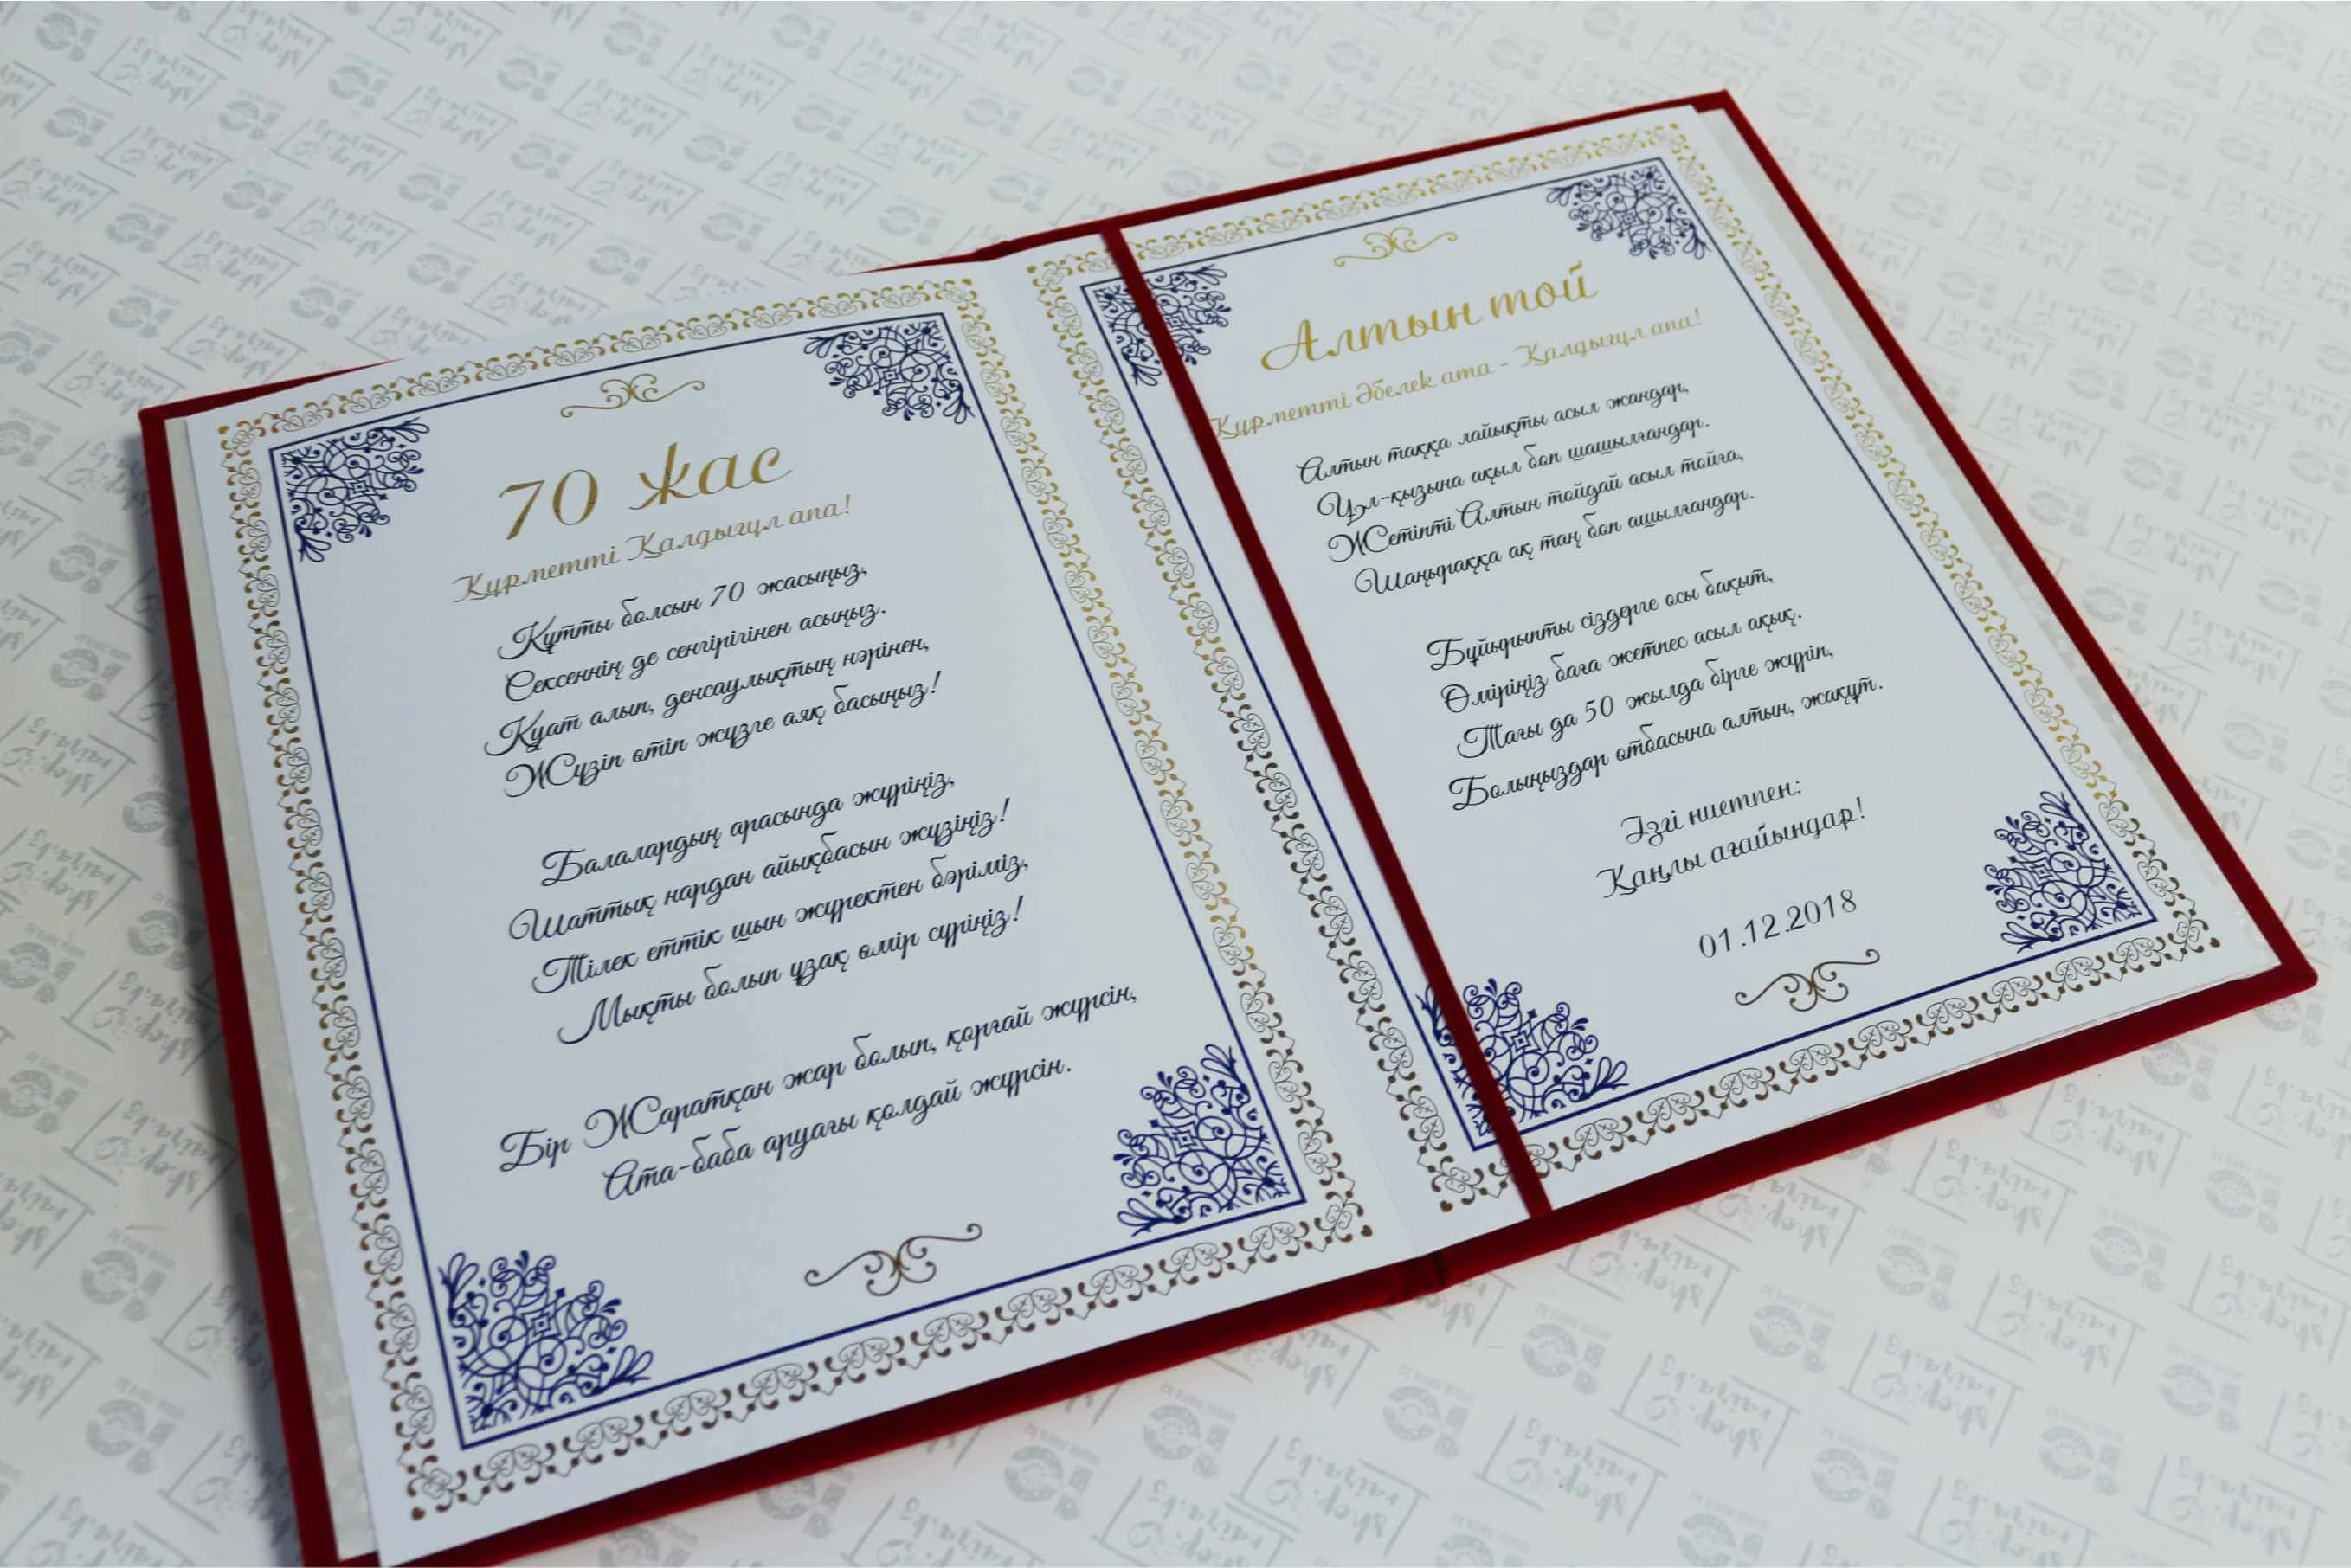 70 жас
Құрметті Қалдыгүл апа!
Құтты болсын 70 жасыңыз,
Сексеннің де сеңгірігінен асыңыз.
Қуат алып, денсаулықтың нәрінен,
Жүзіп өтіп жүзге аяқ басыңыз!
Балалардың арасында жүріңіз,
Шаттық нардан айықбасын жүзіңіз!
Тілек еттік шын жүректен бәріміз,
Мықты болып ұзақ өмір сүріңіз!
Бір Жаратқан жар болып, қорғай жүрсін,
Ата-баба аруағы қолдай жүрсін.
Алтын той
Құрметті Әбелек ата - Қалдыгүл апа!
Алтын таққа лайықты асыл жандар,
Ұл-қызына ақыл боп шашылғандар.
Жетіпті Алтын тойдай асыл тойға,
Шаңыраққа ақ таң боп ашылғандар.
Бұйырыпты сіздерге осы бақыт,
Өміріңіз баға жетпес асыл ақық.
Тағы да 50 жылда бірге жүріп,
Болыңыздар отбасына алтын, жақұт.
Ізгі ниетпен:
Қаңлы ағайындар!
01.12.2018